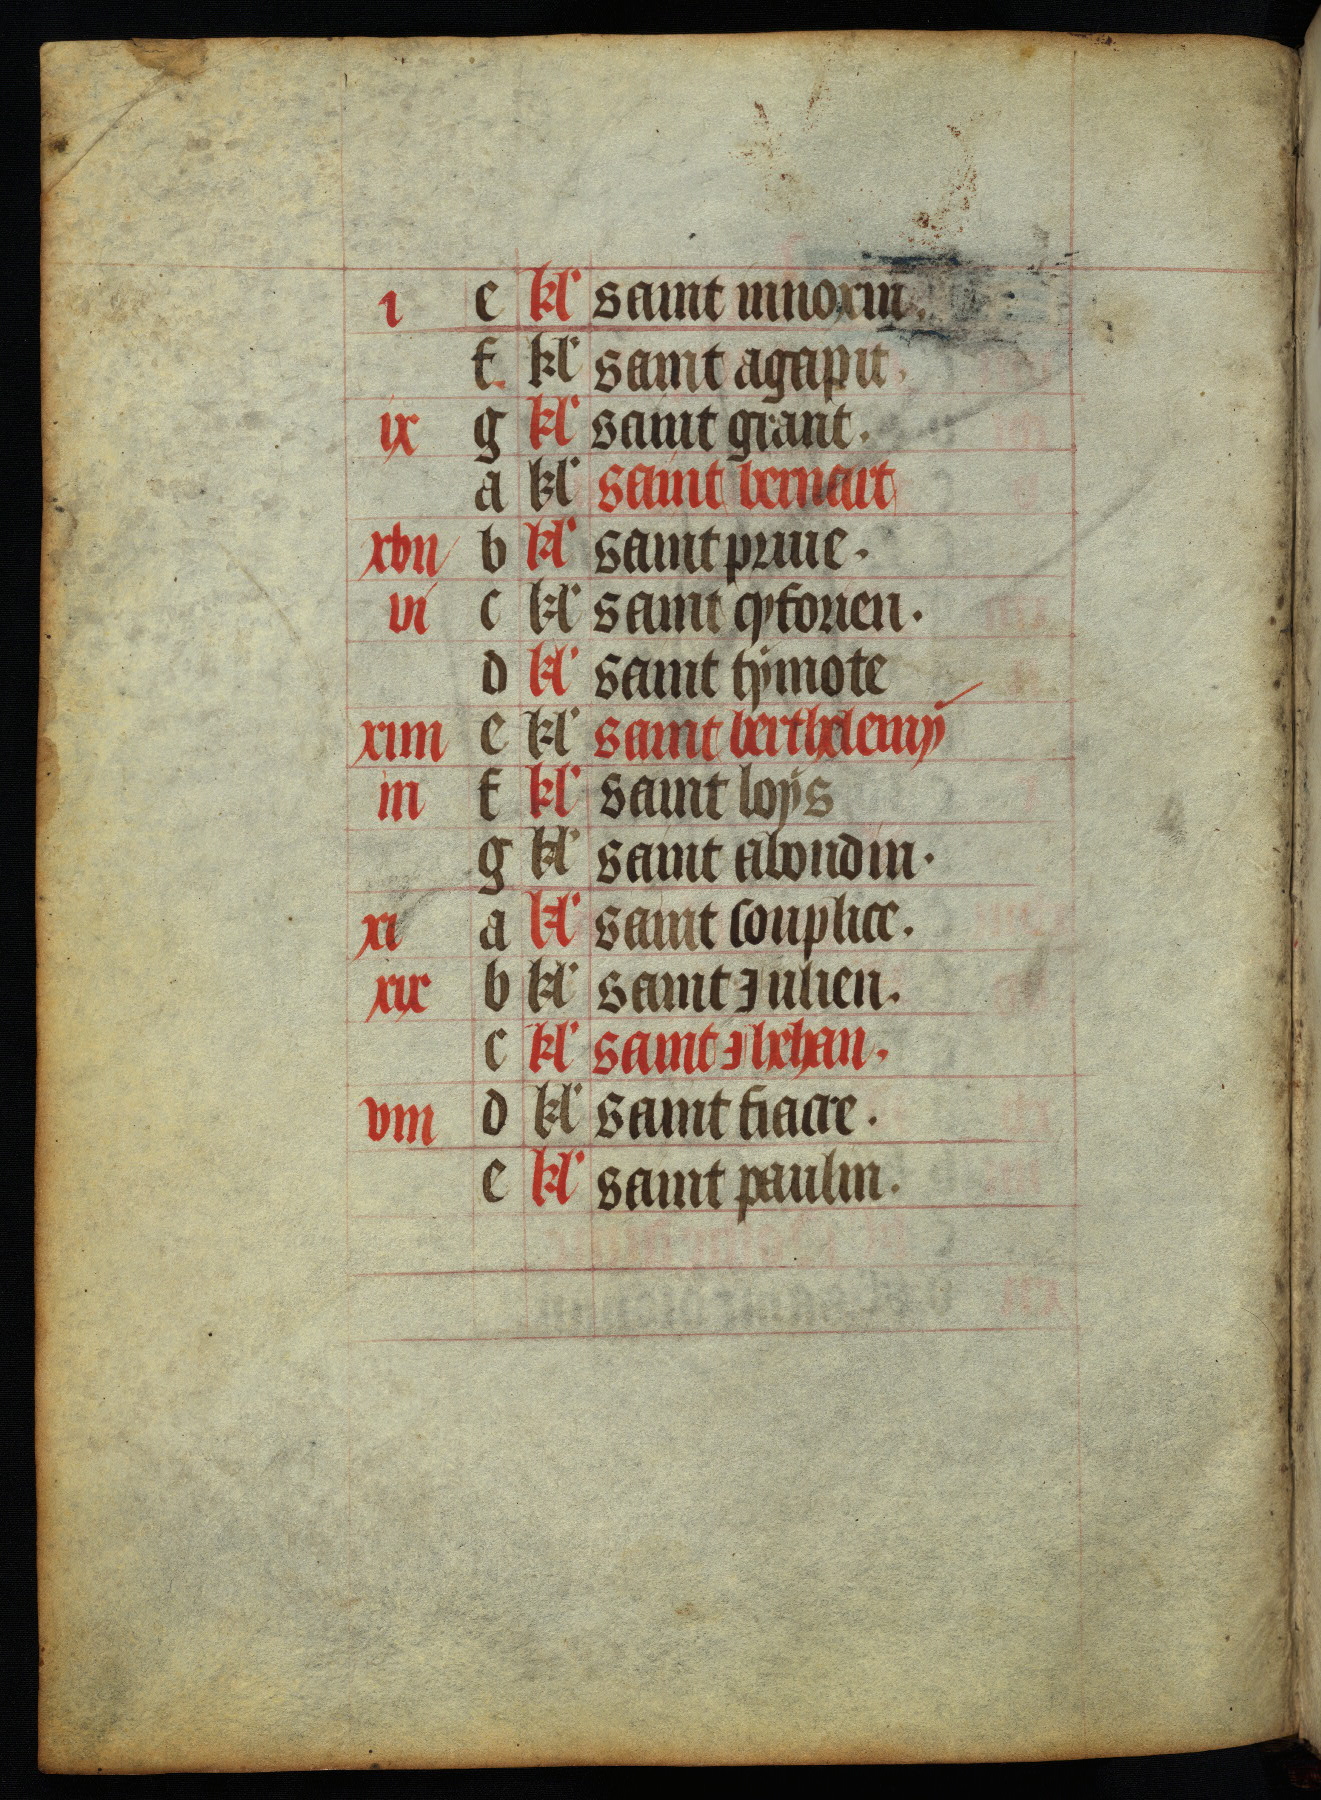 i e kl' saint innoxin.
f kl' saint agapit.
ix g kl' saint grant.
a kl' saint bernart
xvii b kl' saint priue.
vi c kl' saint cyforien.
d kl' saint tymote
xiiii e kl' saint berthelemy
iii f kl' saint loys
g kl' saint abondin.
xi a kl' saint souplice.
xix b kl' saint Julien.
c kl' saint J behan.
viii d kl' saint fiacre.
e kl' saint paulin.